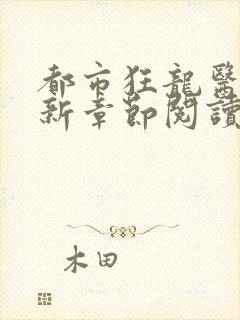 都市狂龍醫
新章節閱讀
木田